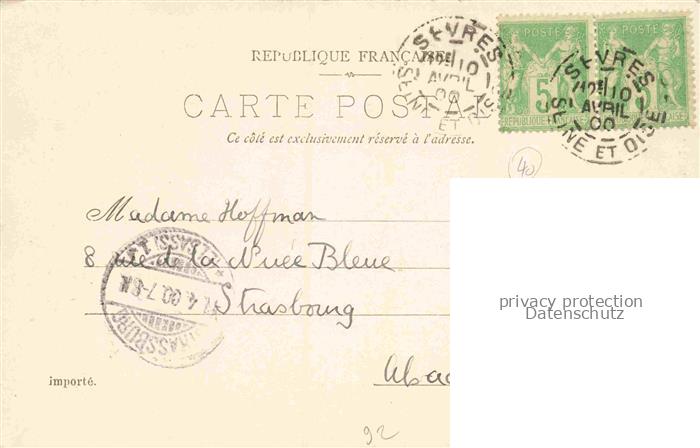 RÉPUBLIQUE FRANÇAISE
CARTE POSTALE
Ce côté est exclusivement réservé à l'adresse.
SÈVRES
10
AVRIL
00
SEINE ET OISE
POSTE
5
REPUBLIQUE FRANÇAISE
POSTE
SÈVRES
10
AVRIL
00
SEINE ET OISE
40
Madame Hoffman
8 rue de la Nuée Bleue
Strasbourg
4.00.7-8
privacy protection
Datenschutz
importé.
92